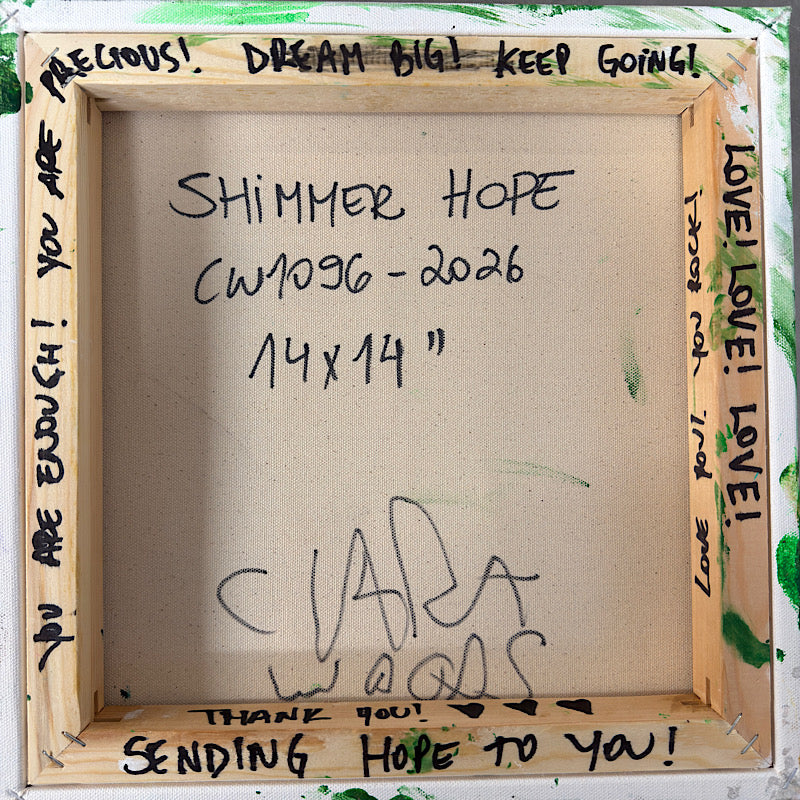 YOU ARE ENOUGH! YOU ARE PRECIOUS! DREAM BIG! KEEP GOING!
LOVE! LOVE! LOVE! LOVE!
LOVE YOU! YOU ROCK!
SHIMMER HOPE
CW1096-2026
14x14"
CLARA
WOODS
THANK YOU! ♥ ♥ ♥
SENDING HOPE TO YOU!